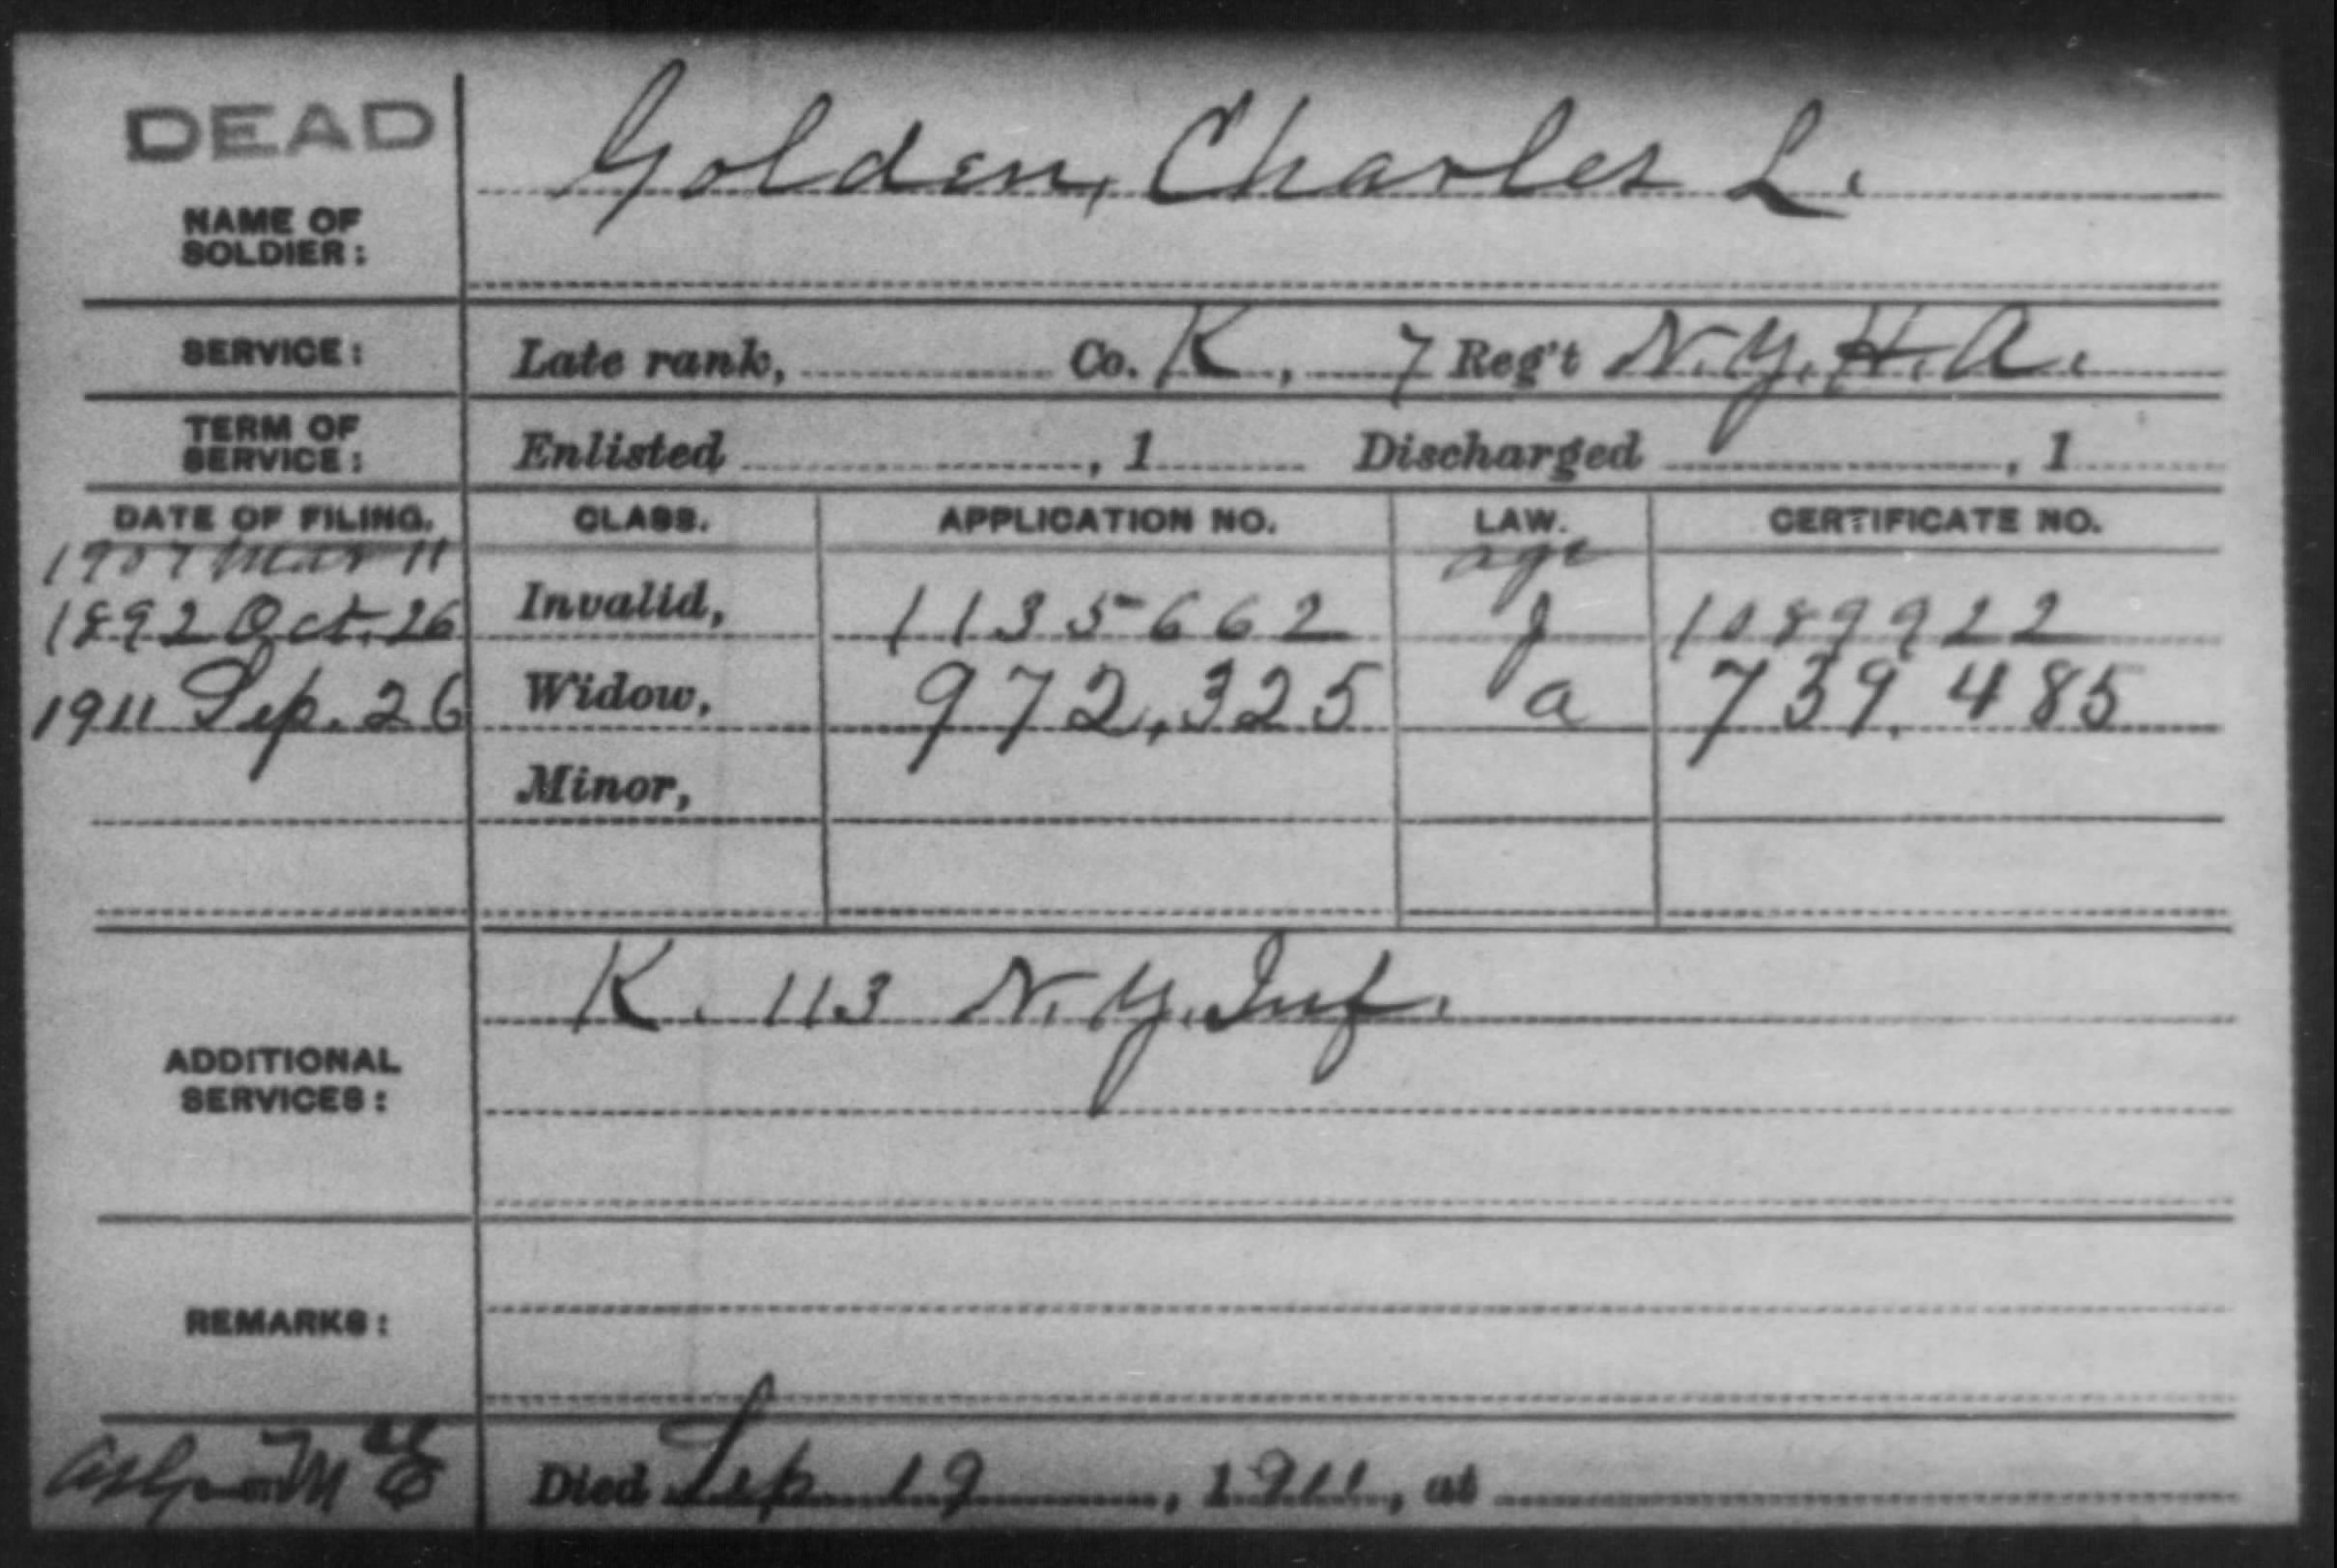 DEAD
Golden, Charles L.
NAME OF
SOLDIER:
SERVICE: Late rank, Co. K, 7 Reg't N.Y.H.A.
TERM OF
SERVICE: Enlisted , 1 Discharged , 1
DATE OF FILING. CLASS. APPLICATION NO. LAW. CERTIFICATE NO.
1907 Mar 11 age
1892 Oct. 26 Invalid, 1135662 J 1089922
1911 Sep. 26 Widow, 972,325 a 739.485
Minor,
K. 113 N.Y. Inf.
ADDITIONAL
SERVICES:
REMARKS:
Died Sep 19, 1911, at